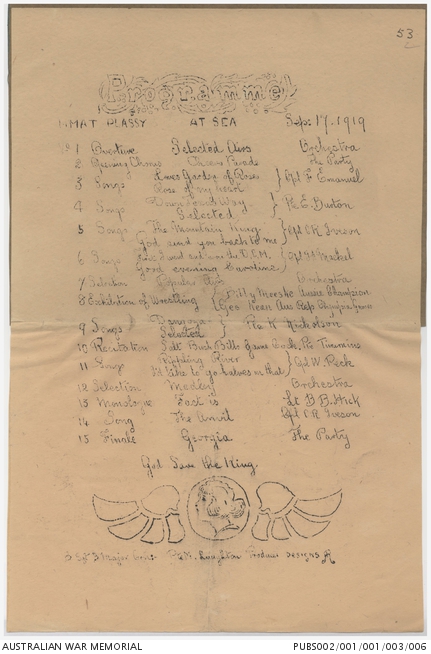 53
Programme
H.MAT PLASSY AT SEA Sep. 17. 1919
1 Overture Selected Airs Orchestra
2 Opening Chorus Cheero Parade The Party
3 Songs Loves Garden of Roses
Rose of my heart Cpl F Emanuel
4 Songs
Selected Pte E. Burton
5 Songs The Mountain King
God send you back to me Cpl C.R. Iveson
6 Songs the D.C.M.
Good evening Caroline
7 Selection Popular Orchestra
8 Exhibition of Wrestling Billy Meeske Aussie Champion
Geo Kean Aus Rep Olympian Games
9 Songs
Selected Pte K Nicholson
10 Recitation Salt Bush Bills Game Cock Pte Timmins
11 Songs Rippling River
I'd like to go halves in that Cpl W. Peck
12 Selection Medley Orchestra
13 Monologue Fact is Lt B.B. Hick
14 Song The Anvil Cpl C.R Iveson
15 Finale Georgia The Party
God Save the King.
Major Designs
AUSTRALIAN WAR MEMORIAL PUBS002/001/001/003/006